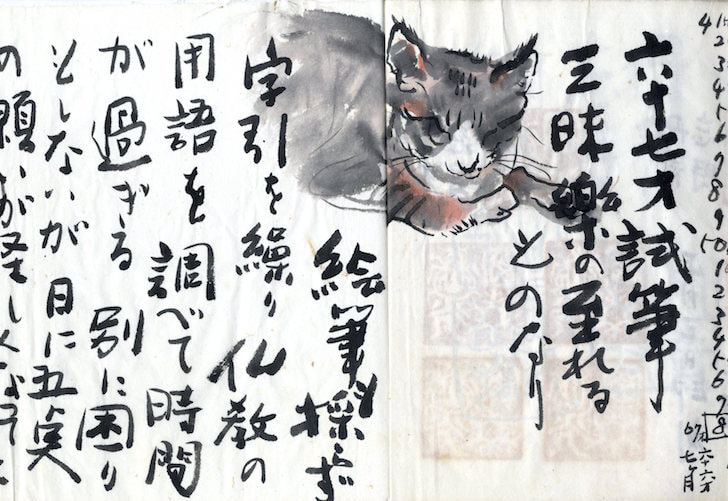 4 1 2 3 4 5 6 7 8 9 10 1 2 3 4 5 6 7 8
六十六才
七ヶ月
六十七才試筆
三昧樂の至れる
ものなり
絵筆採らず
字引を繰り仏教の
用語を調べて時間
が過ぎる 別に困り
もしないが 日に五
の願いが怪しくなって